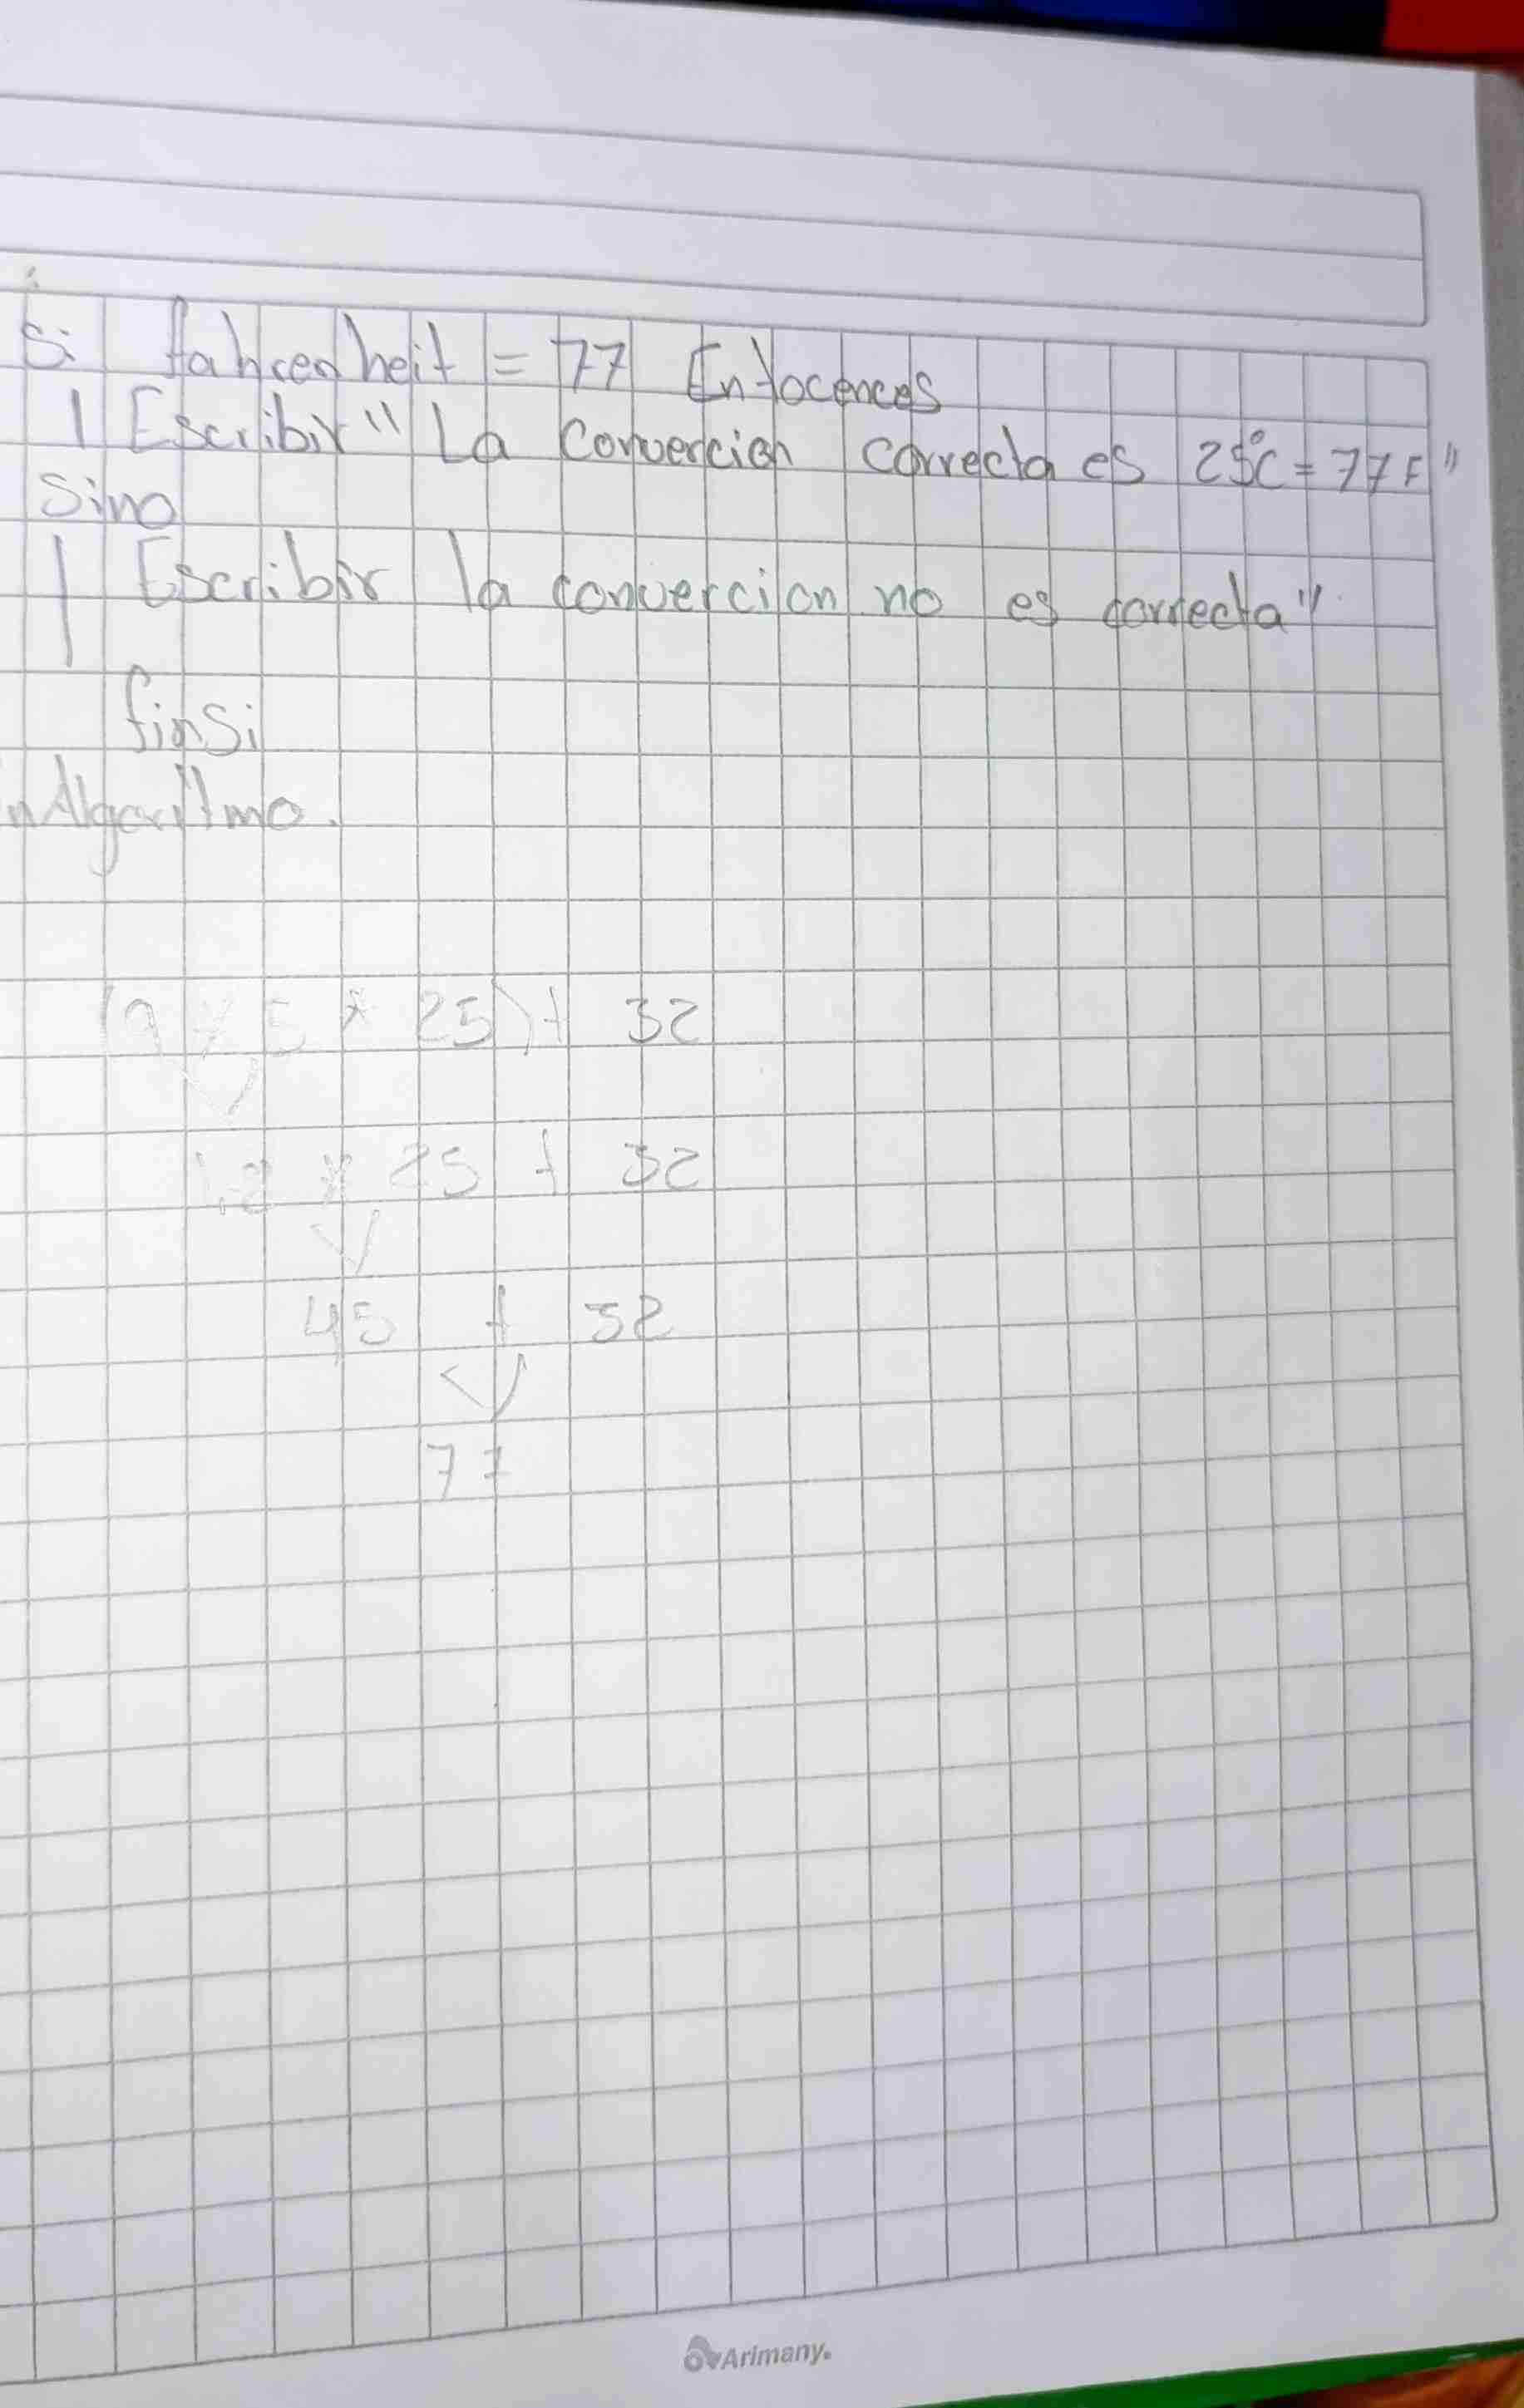 Si fahrenheit = 77 Entocences
Escribir "La convercion correcta es 25°C = 77F"
Sino
Escribir la convercion no es correcta"
finsi
nAlgoritmo.
(9 / 5 * 25) + 32
1.8 * 25 + 32
45 + 32
77
Arimany.